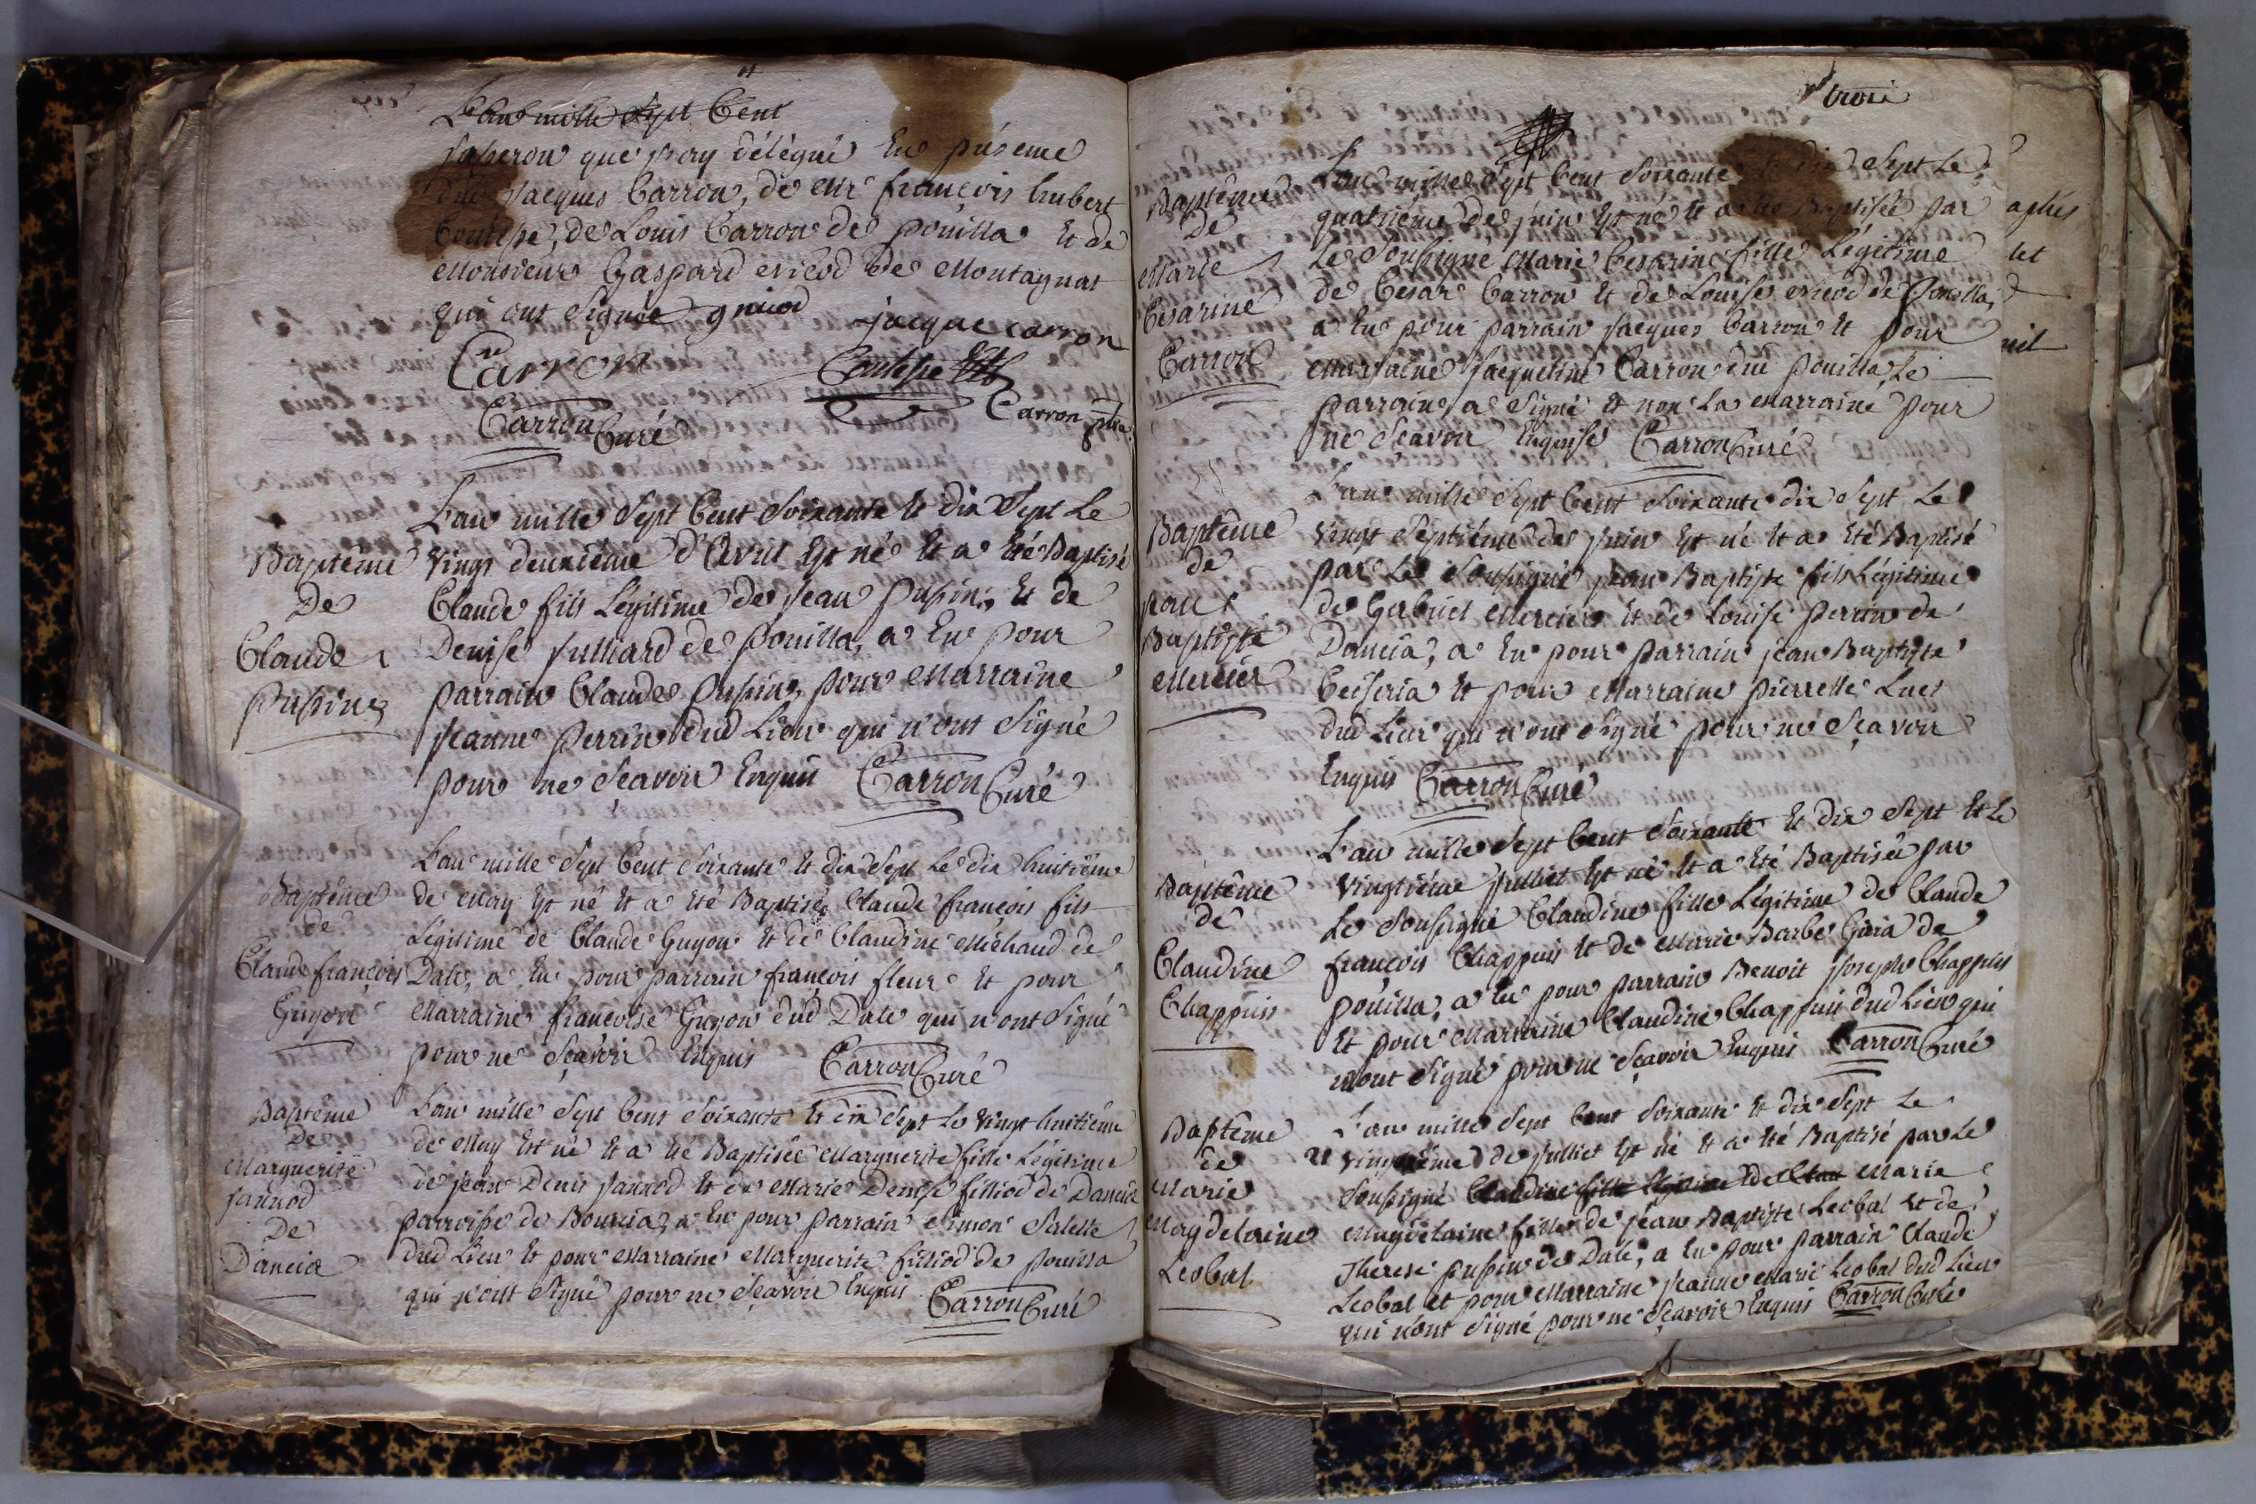 L'an mille Sept Cent
que j'ay délégué En présence
Jacques Carron, de Mr françois hubert
de Louis Carron de pouilla Et de
Monsieur Gaspard nicod de Montagnat
qui ont Signée gnicod
jacque carron
Carron
Carron ptre
Carron Curé
Baptême
De
Claude
pupin
L'an mille Sept Cent Soixante Et dix Sept Le
vingt deuxième d'Avril Est né Et a Eté Baptisé
Claude fils Légitime de Jean pupin, Et de
Denise Julliard de pouilla, a Eu pour
parrain Claude pupin, pour Marraine
Jeanne perrin dud Lieu qui n'ont Signé
pour ne Sçavoir Enquis Carron Curé
Baptême
de
Claude françois
Guyon
L'an mille Sept Cent Soixante Et dix Sept Le dix huitième
de May Est né Et a Eté Baptisé Claude françois fils
Légitime de Claude Guyon Et de Claudine Michaud de
Dale, a Eu pour parrain françois fleur Et pour
Marraine françoise Guyon dud Dale qui n'ont Signé
pour ne Sçavoir Enquis Carron Curé
Baptême
De
Marguerite
Jannod
De
Dancia
L'an mille Sept Cent Soixante Et dix Sept Le vingt huitième
de May Est né Et a Eté Baptisée Marguerite fille Légitime
de Jean Denis Jannod Et de Marie Denise filliod de Dancia
parroisse de Bourcia, a Eu pour parrain Simon Salette
dud Lieu Et pour Marraine Marguerite filliod de pouilla
qui n'ont Signé pour ne Sçavoir Enquis Carron Curé
trois
Baptême
de
Marie
Césarine
Carron
L'an mille Sept Cent Soixante Et dix Sept Le
quatrième de juin Est né Et a Eté Baptisée par
Le Soussigné Marie Césarine fille Légitime
de César Carron Et de Louise nicod de pouilla,
a Eu pour parrain Jacques Carron Et pour
Marraine Jacqueline Carron dud pouilla, Le
parrain a Signé Et non La Marraine pour
ne Sçavoir Enquise Carron Curé
Baptême
de
jean
Baptiste
Mercier
L'an mille Sept Cent Soixante dix Sept Le
vingt Septième de juin Est né Et a Eté Baptisé
par Le Soussigné jean Baptiste fils Légitime
de Gabriel Mercier Et de Louise perrin de
Dancia, a Eu pour parrain jean Baptiste
Et pour Marraine pierrette
dud Lieu qui n'ont Signé pour ne Sçavoir
Enquis Carron Curé
Baptême
de
Claudine
Chappuis
L'an mille Sept Cent Soixante Et dix Sept Et Le
vingtième Julliet Est né Et a Eté Baptisée par
Le Soussigné Claudine fille Légitime de Claude
françois Chappuis Et de Marie Barbe de
pouilla, a Eu pour parrain Benoit Joseph Chappuis
Et pour Marraine Claudine Chappuis dud Lieu qui
n'ont Signé pour ne Sçavoir Enquis Carron Curé
Baptême
de
Marie
Magdelaine
Leobal
L'an mille Sept Cent Soixante Et dix Sept Le
de Julliet Est né Et a Eté Baptisé par Le
Soussigné Claudine fille légitime de Claude Marie
Magdelaine fille de jean Baptiste Leobal Et de
Therese pupin de Dale, a Eu pour parrain Claude
Leobal et pour Marraine Jeanne Marie Leobal dud Lieu
qui n'ont Signé pour ne Sçavoir Enquis Carron Curé